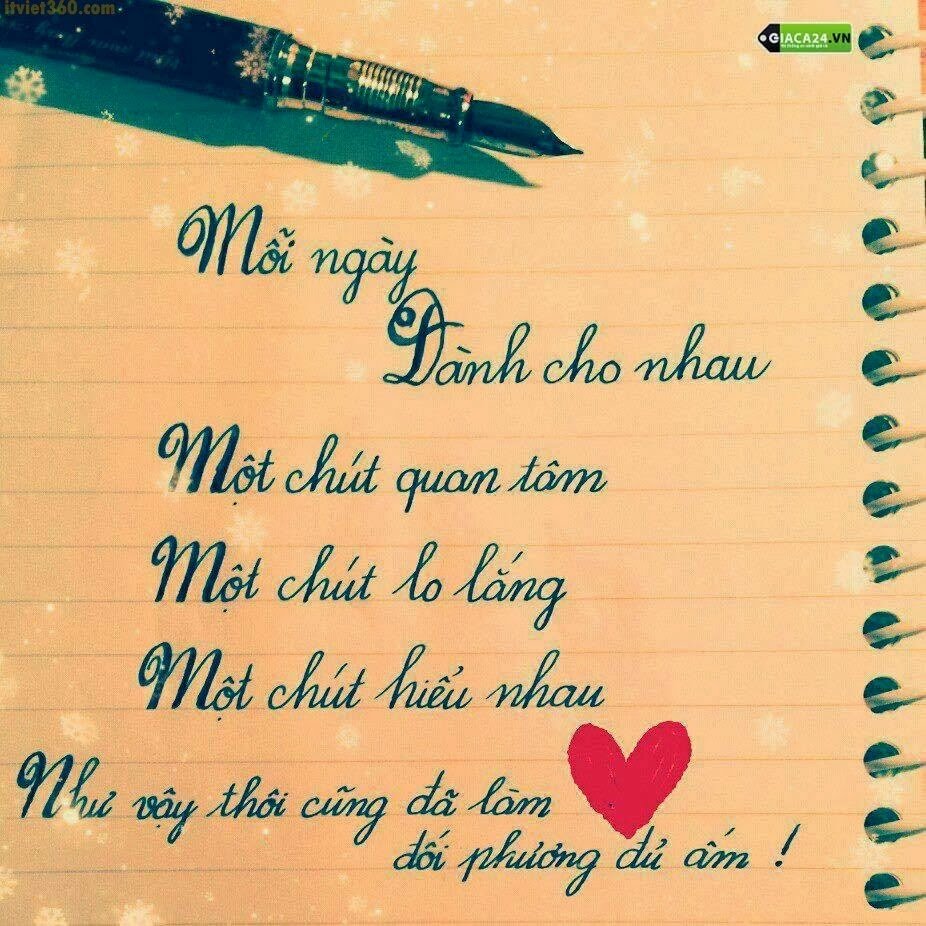 itviet360.com
GIACA24.VN
Mỗi ngày
Dành cho nhau
Một chút quan tâm
Một chút lo lắng
Một chút hiểu nhau
Như vậy thôi cũng đã làm
đối phương đủ ấm !